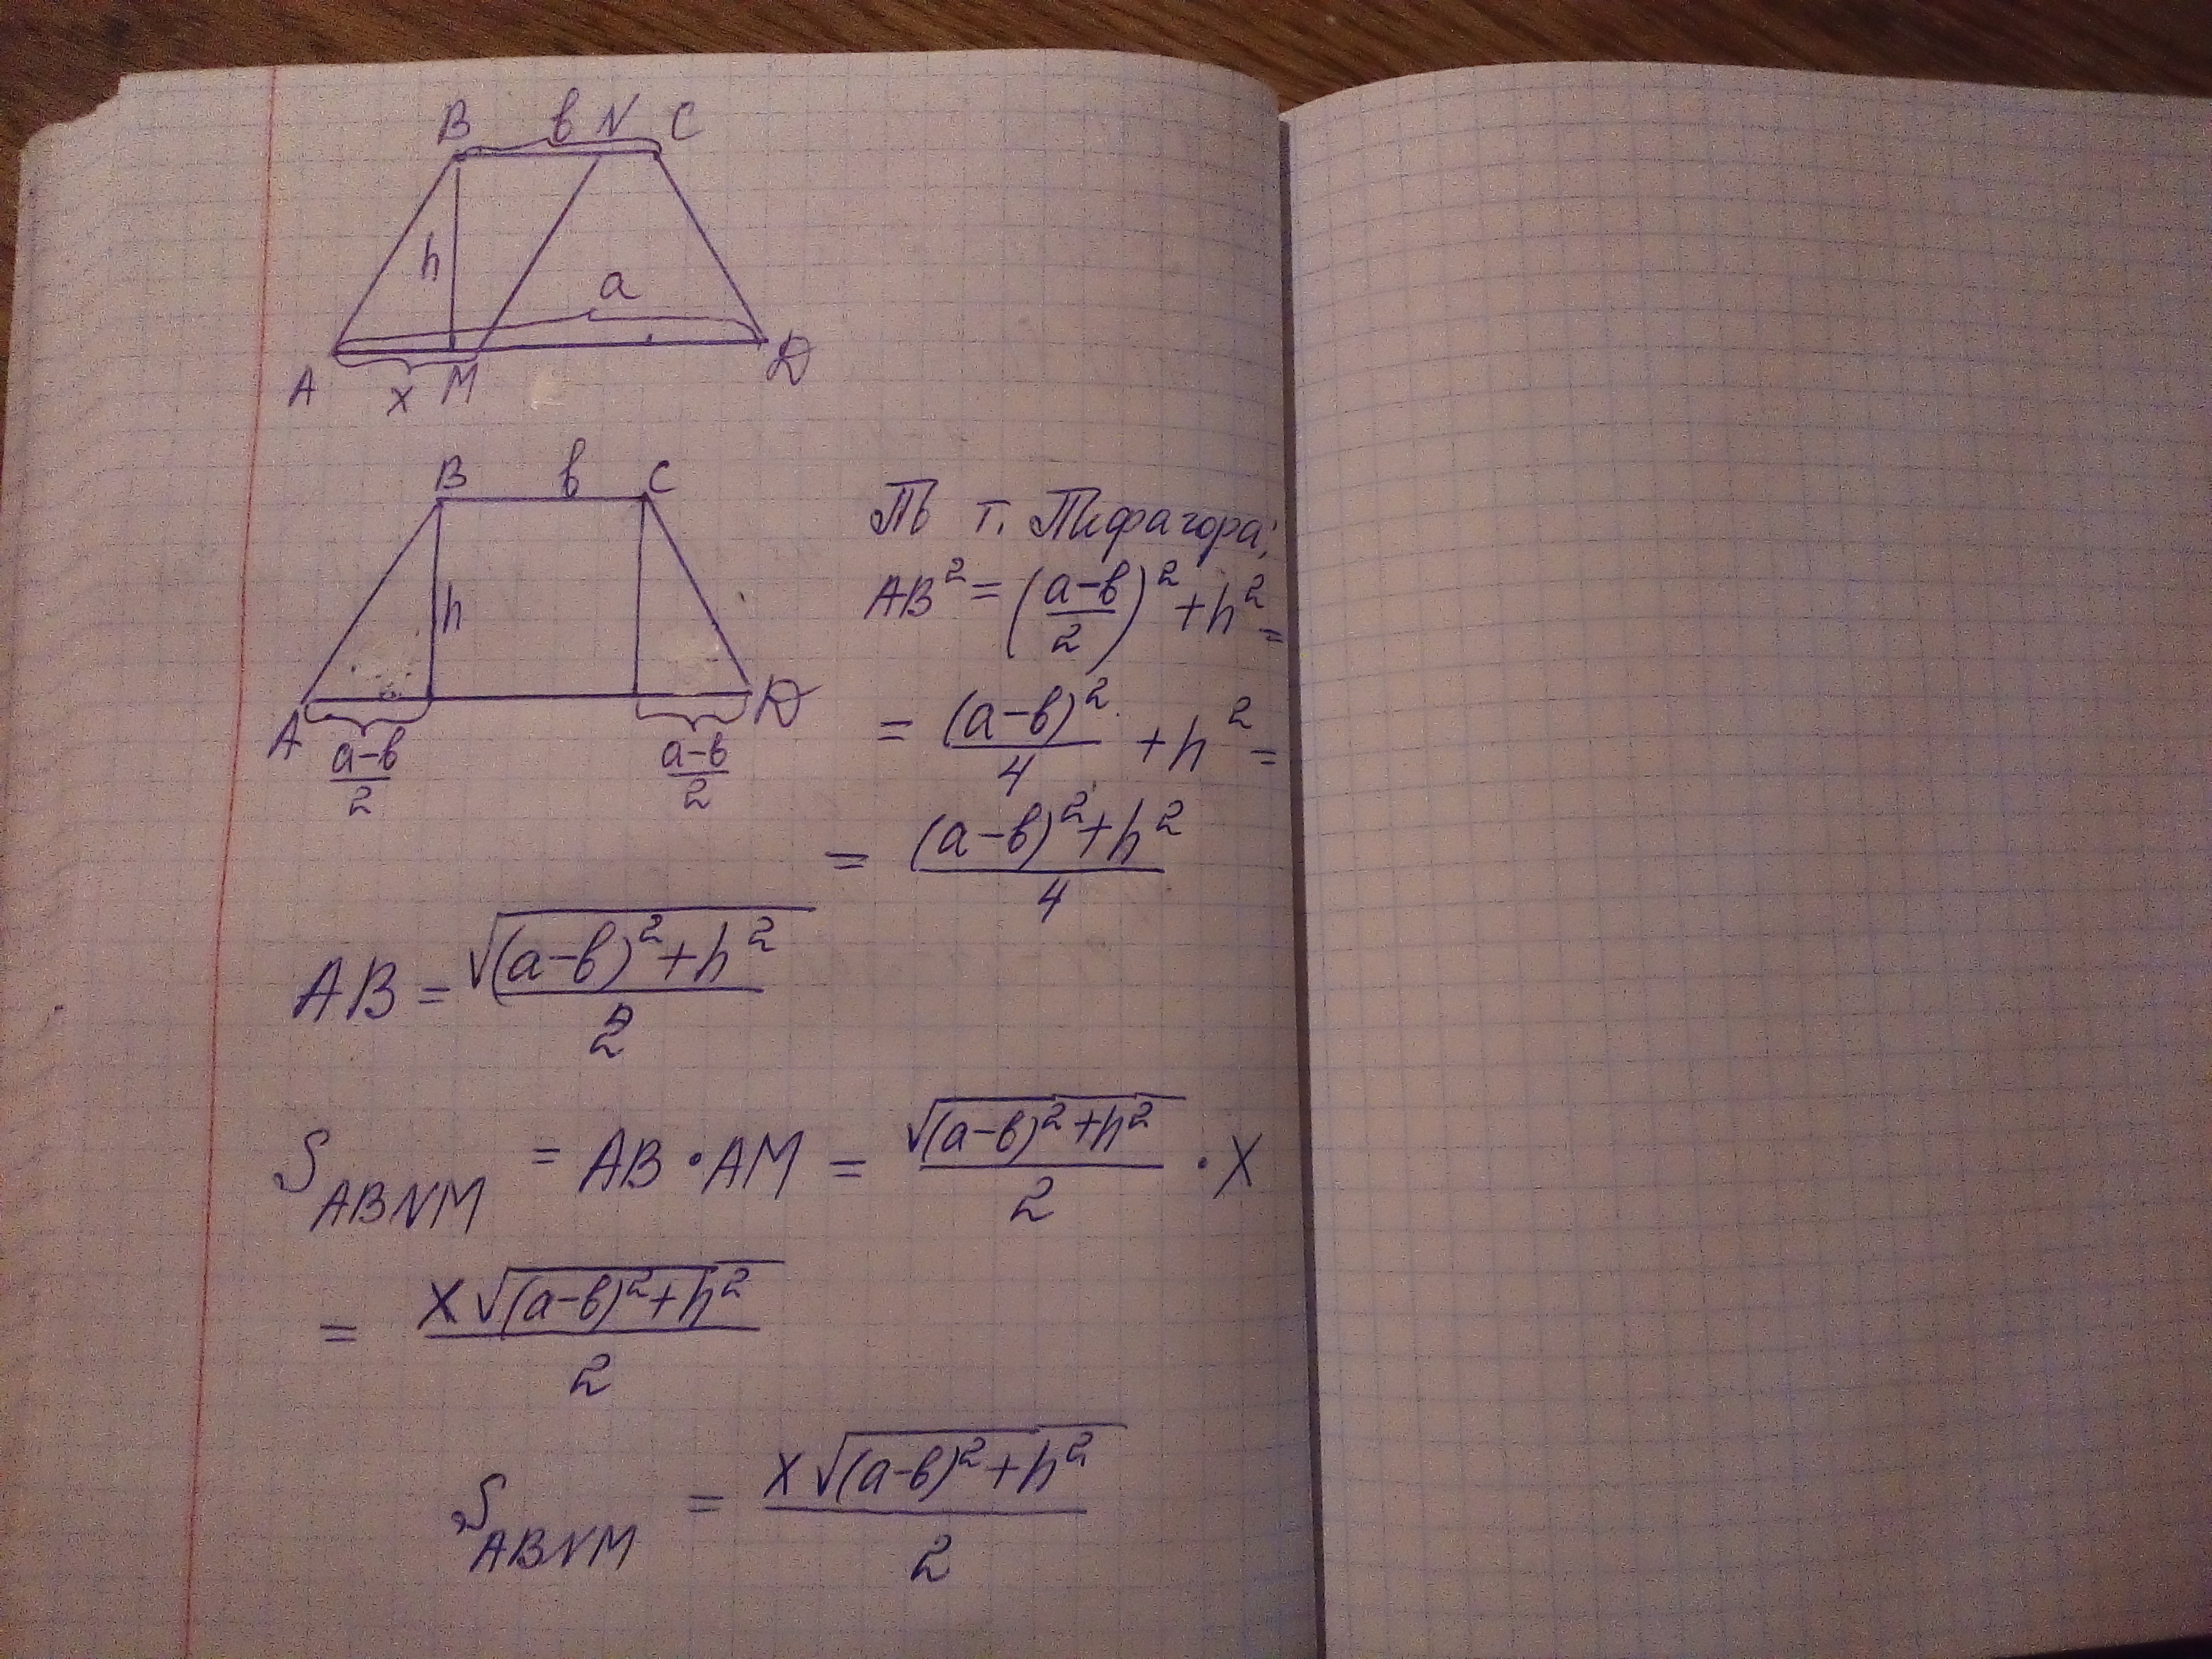 B в N C
h
a
A x M D
B в C
h
A D
a-в/2 a-в/2
По т. Пифагора:
AB² = (a-в/2)² + h² =
= (a-в)²/4 + h² =
= (a-в)²+h²/4
AB = √(a-в)²+h²/2
S ABNM = AB · AM = √(a-в)²+h²/2 · X
= X√(a-в)²+h²/2
S ABNM = X√(a-в)²+h²/2